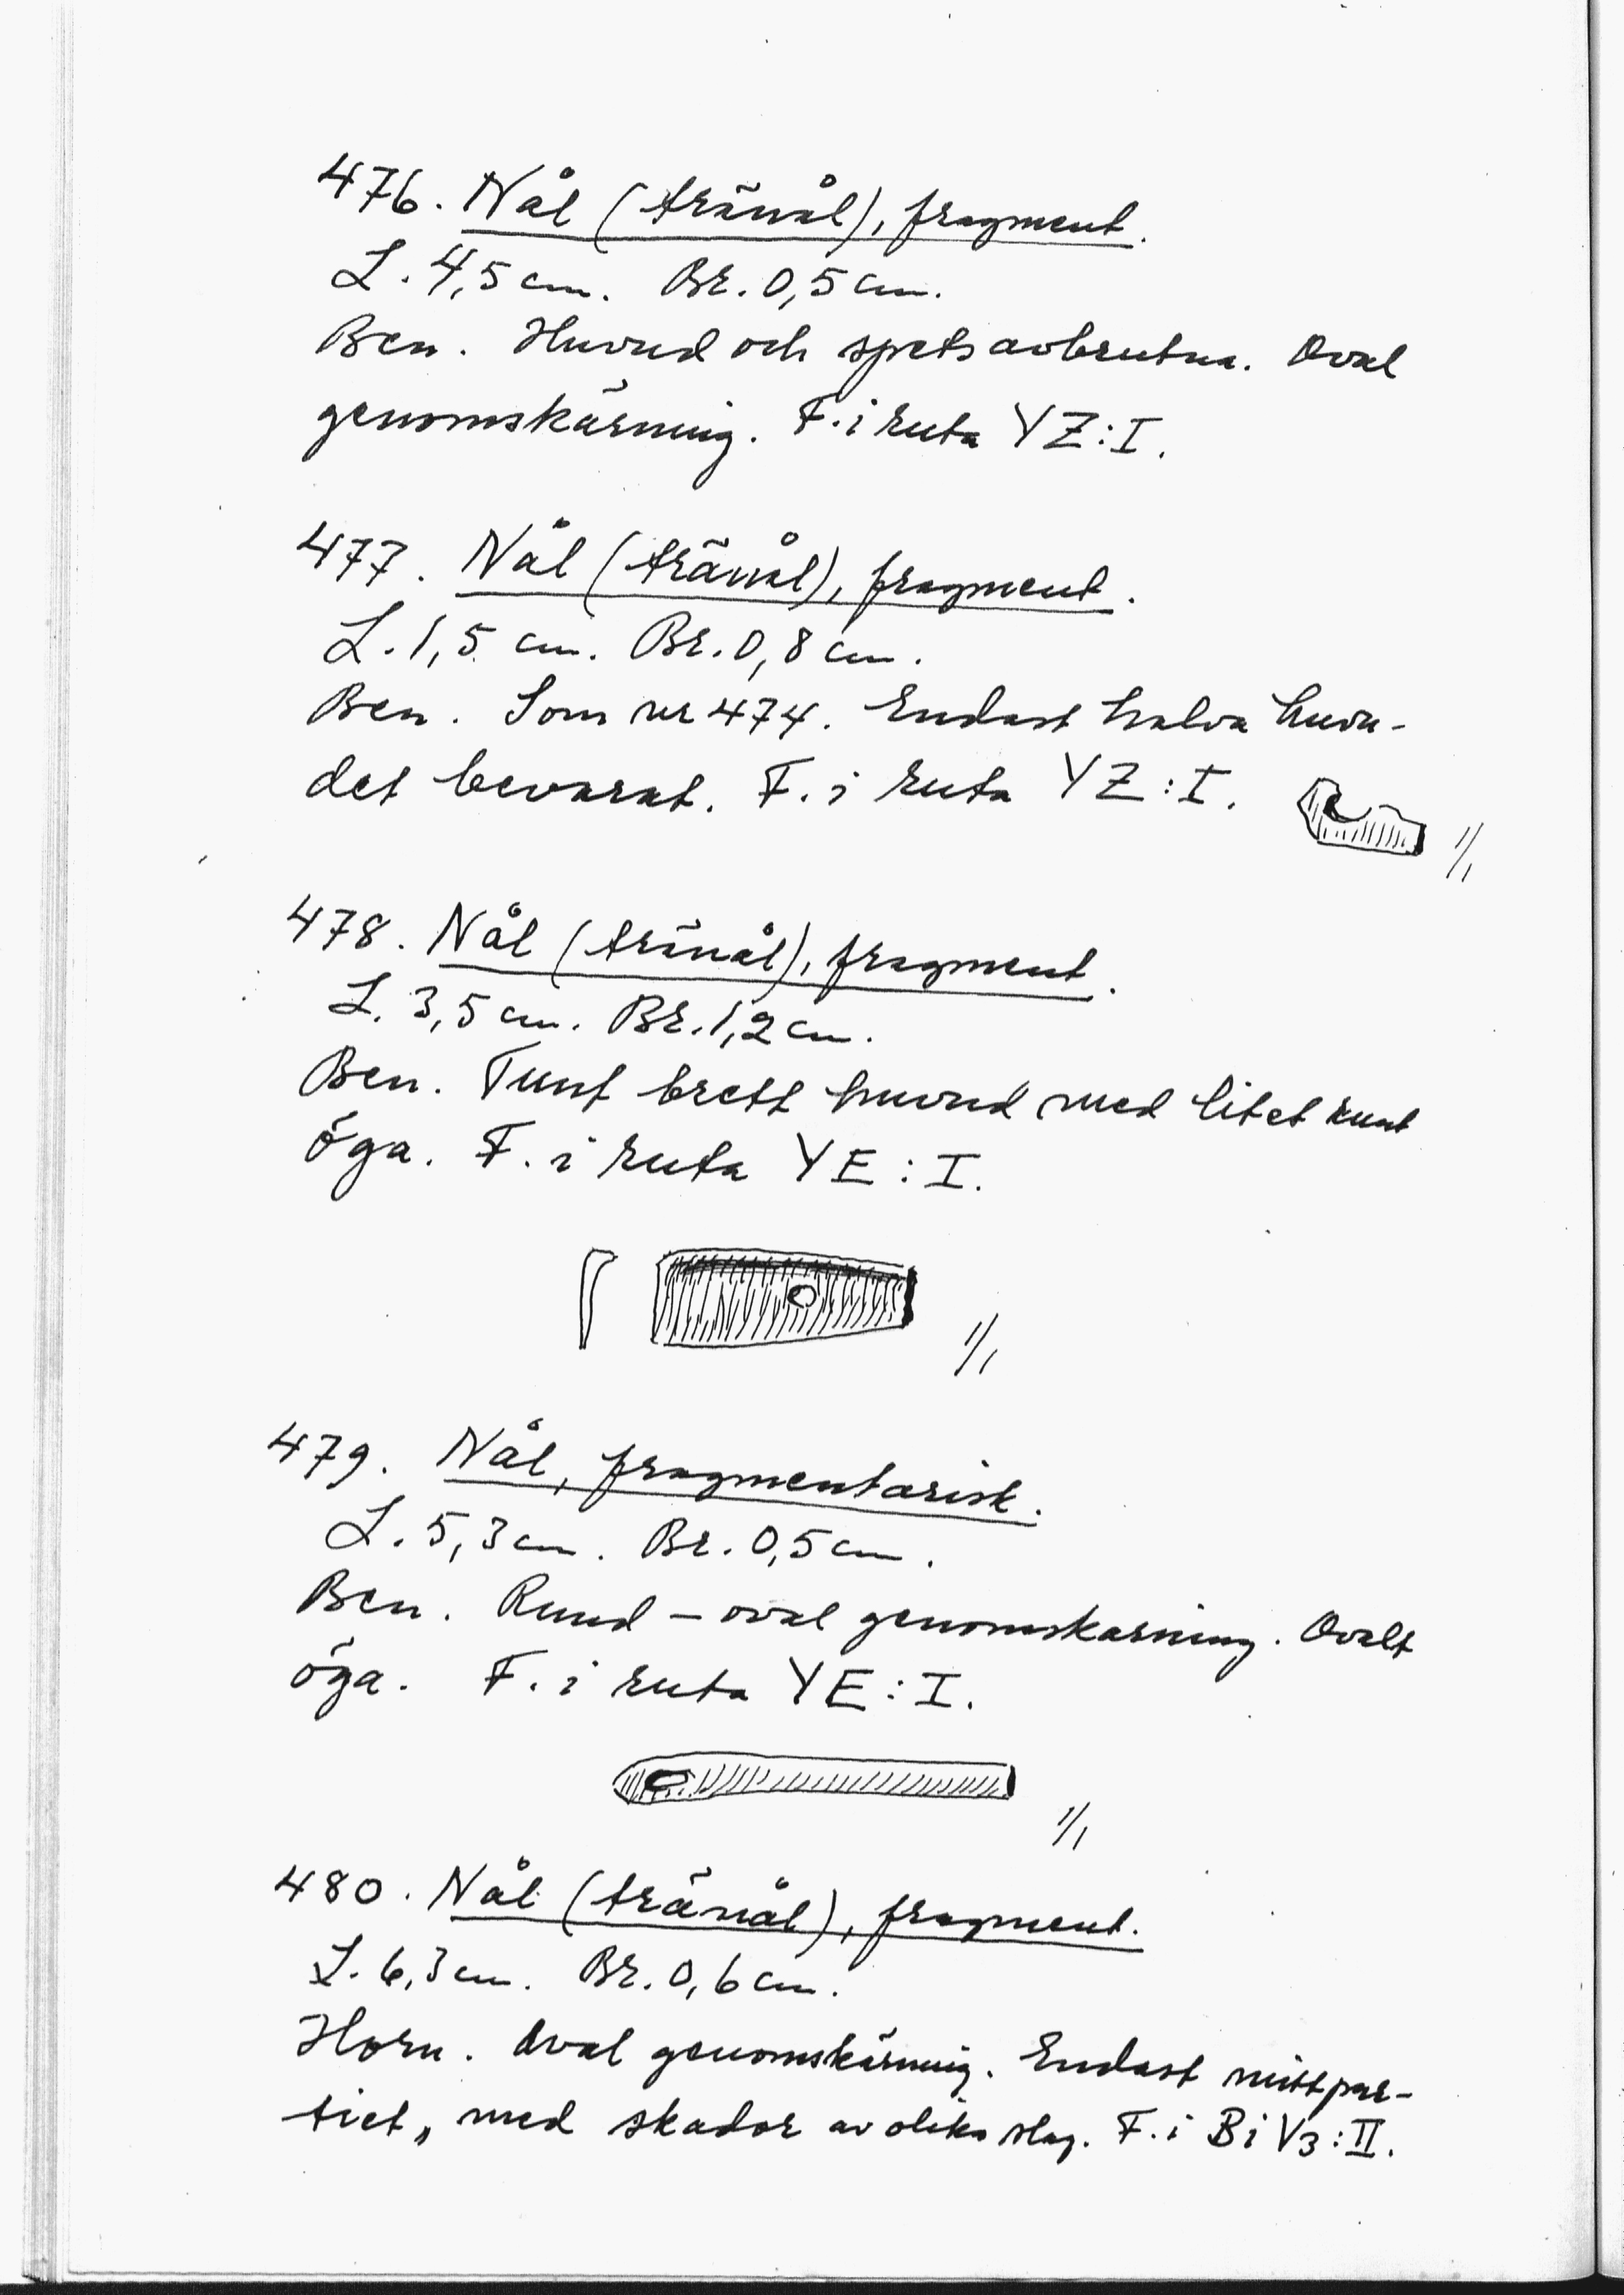 476. Nål (tränål), fragment.
L. 4,5 cm. Br. 0,5 cm.
Ben. Huvud och spets avbrutna. Oval
genomskärning. F. i ruta YZ:I.
477. Nål (tränål), fragment.
L. 1,5 cm. Br. 0,8 cm.
Ben. Som nr 474. Endast halva huvu-
det bevarat. F. i ruta YZ:I.
1/1
478. Nål (tränål), fragment.
L. 3,5 cm. Br. 1,2 cm.
Ben. Tunt brett huvud med litet runt
öga. F. i ruta YE:I.
1/1
479. Nål, fragmentarisk.
L. 5,3 cm. Br. 0,5 cm.
Ben. Rund – oval genomskarning. Ovalt
öga. F. i ruta YE:I.
1/1
480. Nål (tränål), fragment.
L. 6,3 cm. Br. 0,6 cm.
Horn. Oval genomskärning. Endast mittpar-
tiet, med skador av olika slag. F. i B i V3:II.